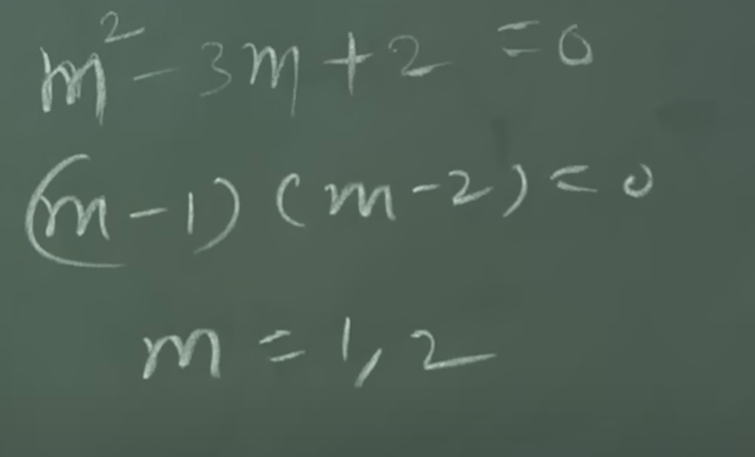 m² - 3m + 2 = 0
(m - 1) (m - 2) = 0
m = 1, 2